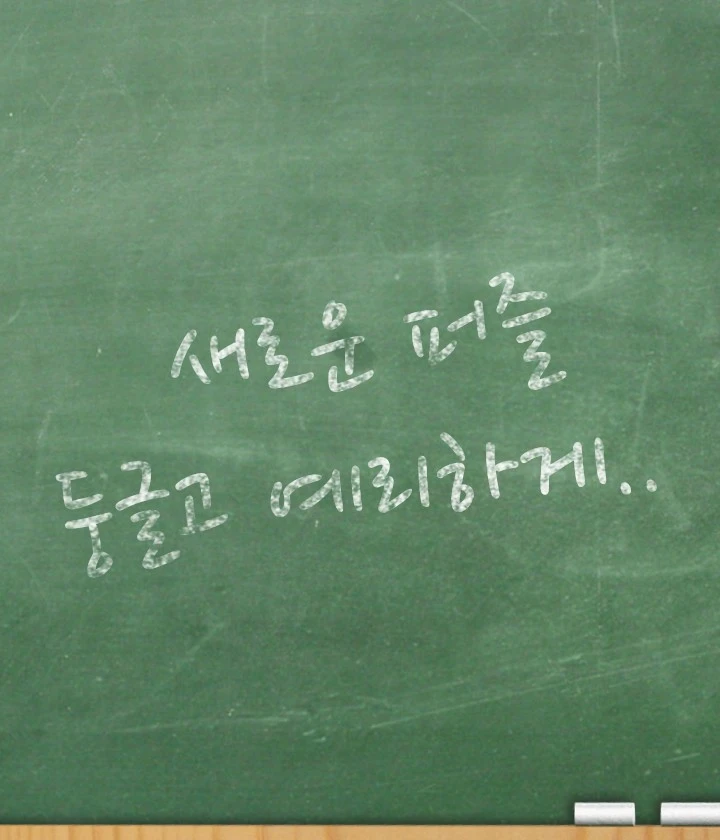 새로운 퍼즐
둥글고 예리하게..